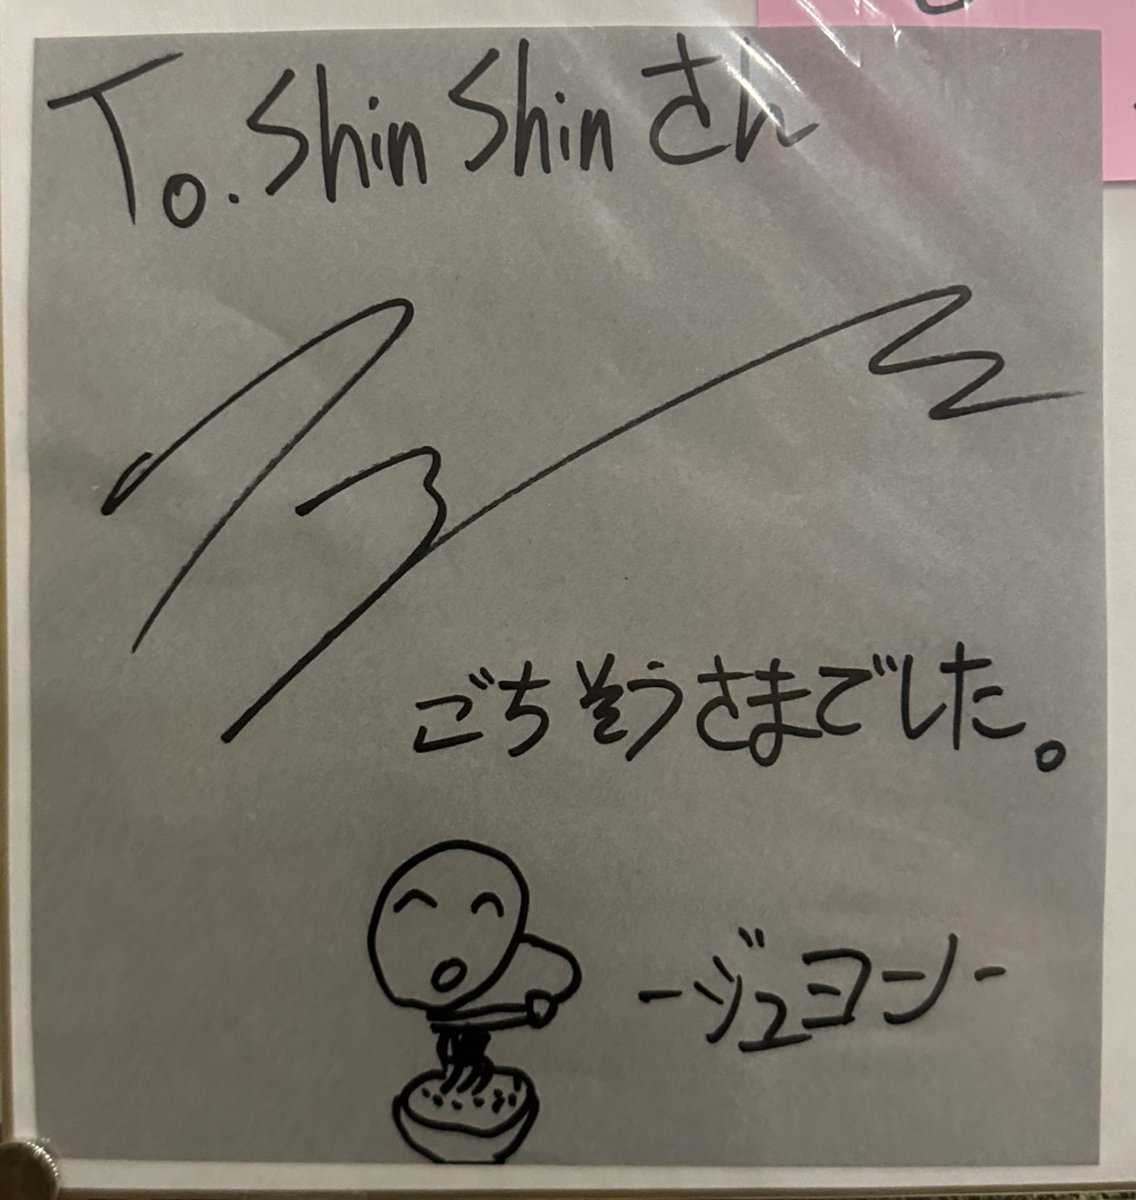 To. Shin Shin さん
ごちそうさまでした。
-ジュヨン-